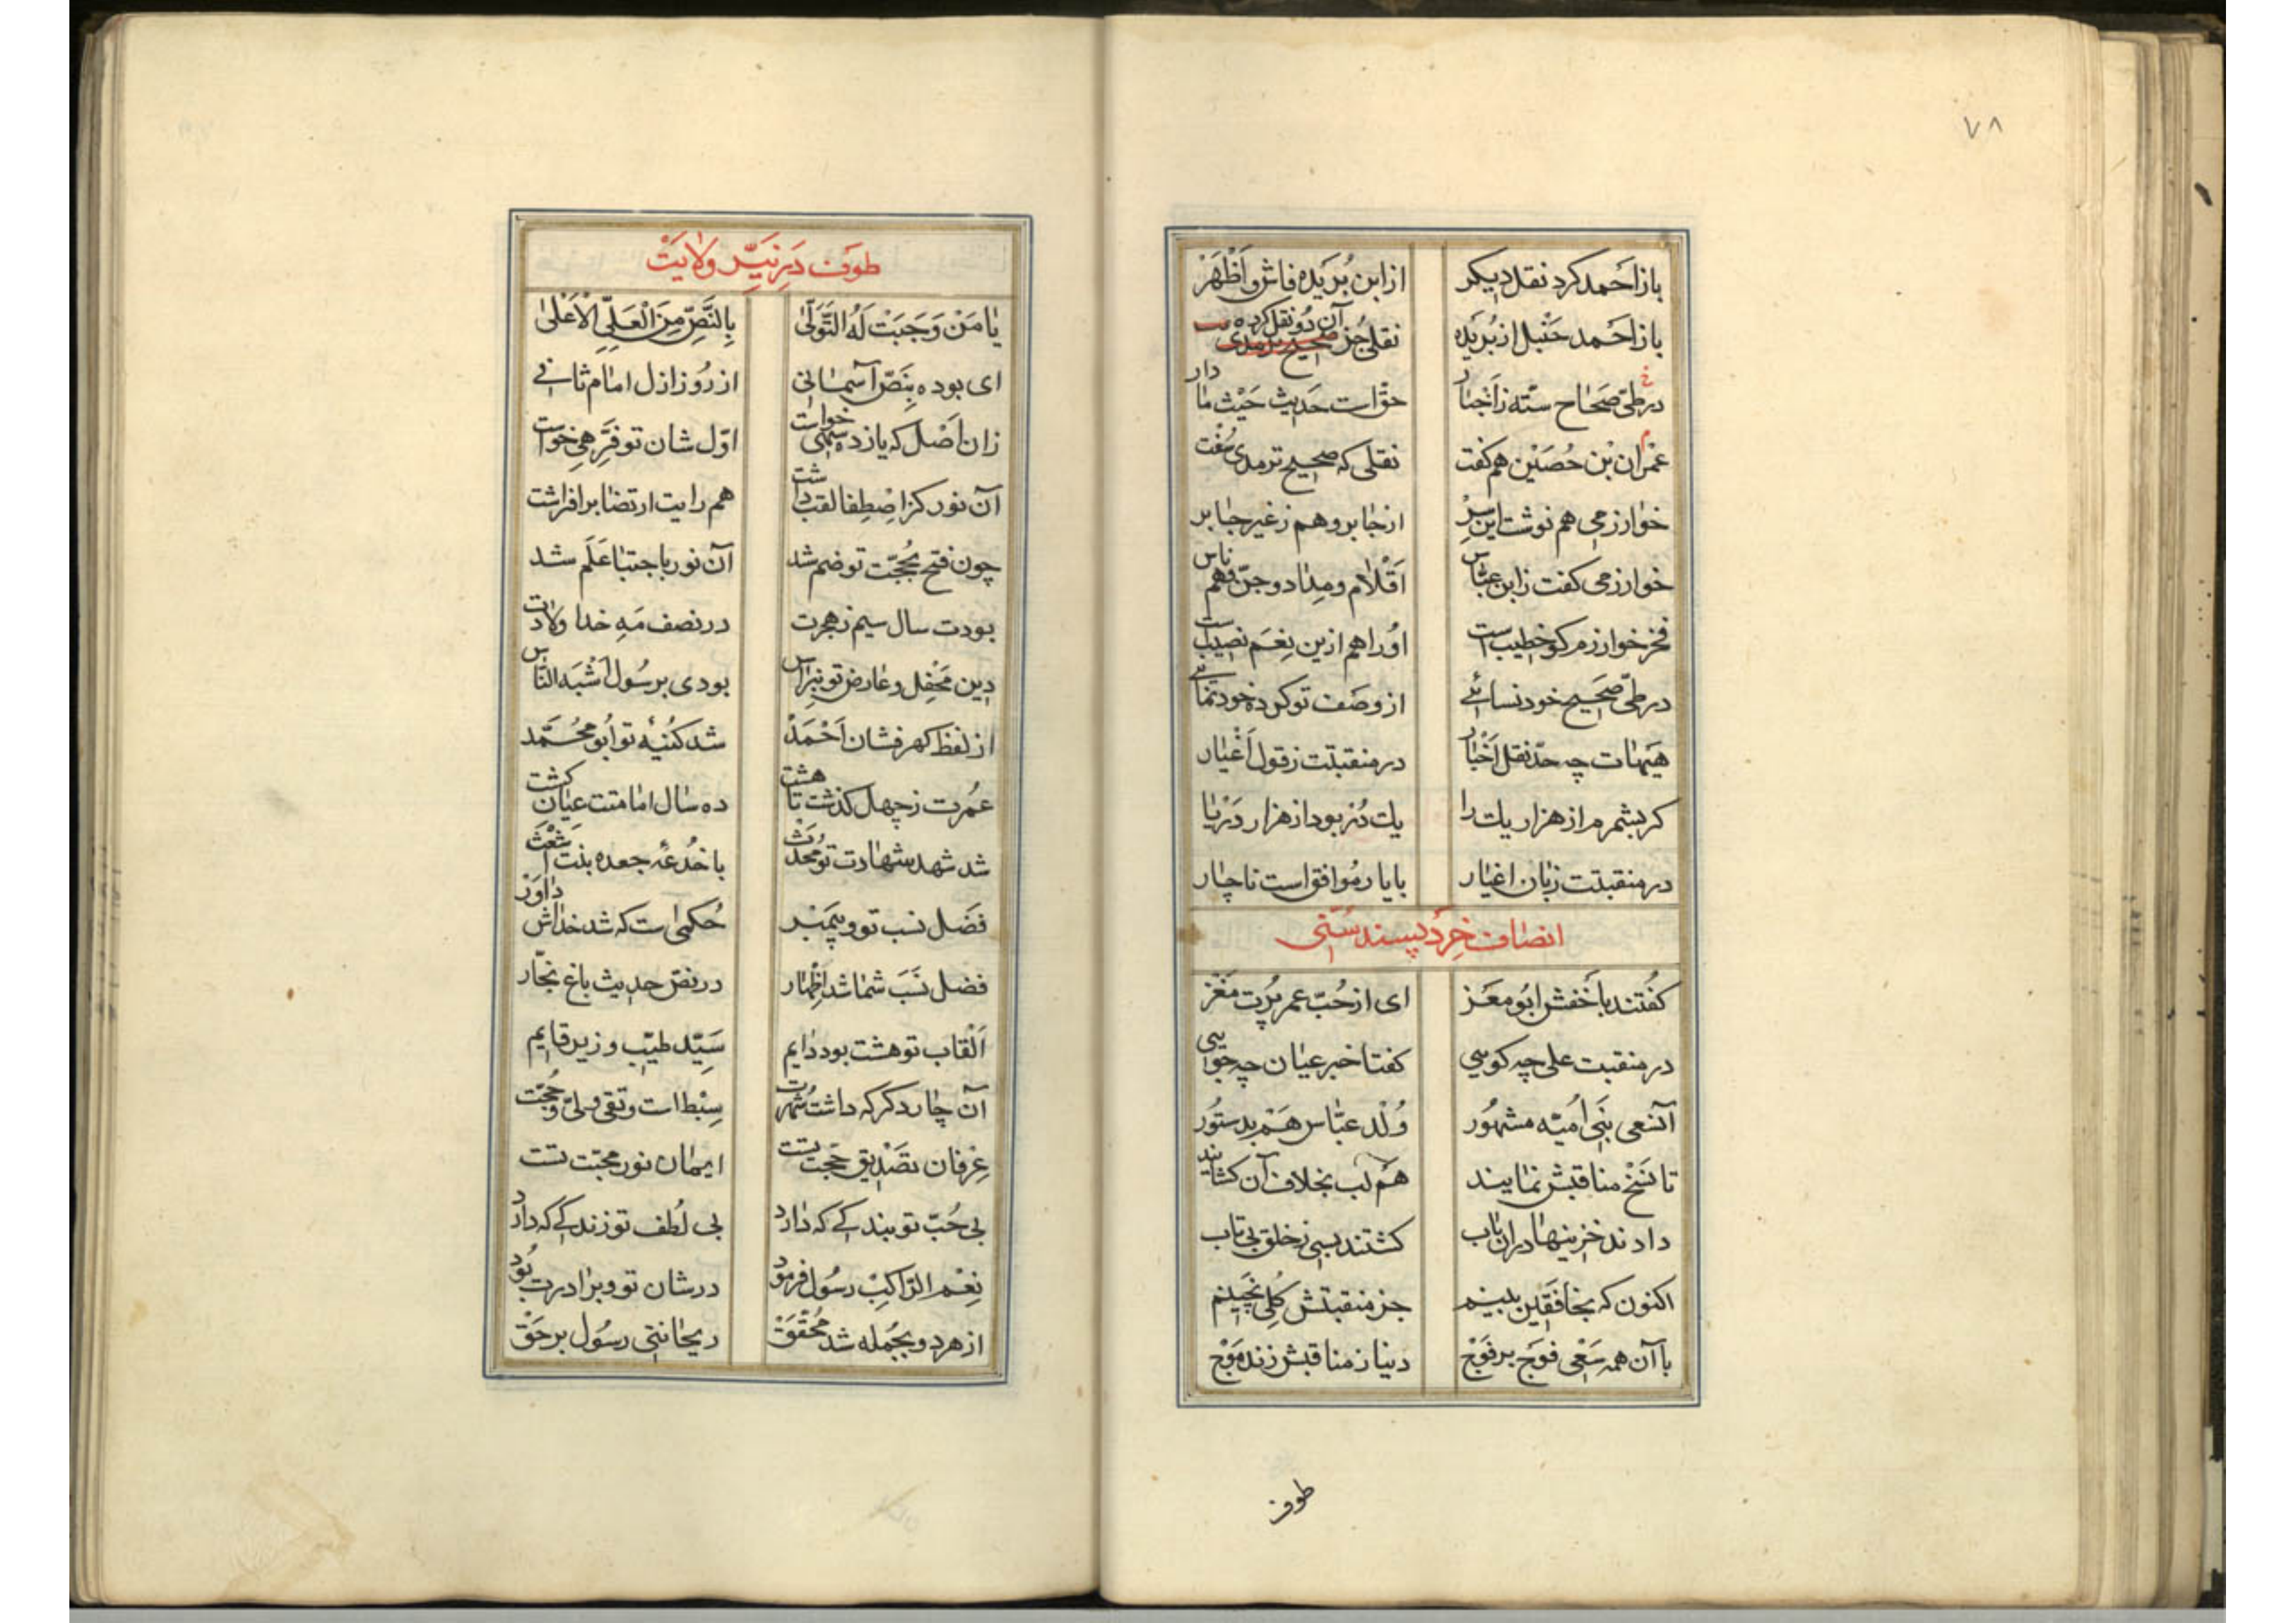 ٧٨
باز احمد کرد نقل دیکر از ابن بُرَیده فاش و اَظْهَرْ
باز احمد حنبل از بُرَیده نقلی جُز آن دو نقل کرده
در طیّ صحاح ستّه ز اَخبار حقّ است حدیث حَیْث ما دار
عمران بْن حُصَیْن هم کفت نقلی که صحیح ترمدی سُفت
خوارزمی هم نوشت این سِرّ از جابر و هم ز غیر جابر
خوارزمی کفت ز ابن عبّاس اَقْلام و مِداد و جنّ و هم ناس
فخر خوارزم کو خطیب است اوُرا هم ازین نِعَم نصیب است
در طیّ صَحیح خود نسائے از وصف تو کرده خود نمائے
هَیهات چه حدّ نقل اَخْبار در منقبتت ز قول اَغْیار
کر بشمرم از هزار یك را یك دُرّ بود از هزار دَرْیا
در منقبتت زبان اغیار با یار مُوافق است ناچار
انصاف خِرَد پسند سُنّی
کفُتند با خفش ابُو مَعَز ای از حُبّ عمر پُرت مَغز
در منقبت علی چه کویی کفتا خبر عیان چه جویی
آنسعی بَنی اُمیّه مشهُور وُلْد عبّاس هَم بدستوُر
تا نَسْخ مناقبش نمایند هَم لَب بخلاف آن کشایند
دادند خزینها دران باب کشتند بسی ز خلق بی تاب
اکنون که بخافقَین بینم جز منقبتش کُلی نچینم
با آن همه سَعْی فوَج بر فوَجْ دنیا ز مناقبش زند مَوْج
طوف
طوف دَرِ نیّر ولایَتْ
یا مَنْ وَجَبَتْ لَهُ التَّوَلّیٰ بِالنَّصِّ مِنَ الْعَلِیِّ الْاَعْلیٰ
ای بوده بِنَصّ آسمانی از رُوز ازل امام ثانی
زان اَصْل که یازده سَمی خواست اوّل شان تو فَرِّهی خواست
آن نور کز اصْطِفا لقب داشت هم رایت ارتضا برافراشت
چون فتح بحُجّت تو ضم شد آن نور باجتبا عَلَم شد
بودت سال سیم ز هجرت در نصف مَهِ خدا ولادت
دین مَحْفِل و عارض تو نبراس بودی برسُول اَشْبَه النّاس
از لفظ کهر فشان اَحْمَدْ شد کنُیهٔ تو اَبُو محُمَّد
عمُرت ز چهل کذشت تا هشت ده سال امامتت عیان کشت
شد شهد شهادت تو مُحدَث با خُدعهٔ جعده بنت اشْعَث
فضَل نسب تو و پیمَبر حُکمی است که شد خداش داوَر
فضل نَسَب شما شد اِظْهار در نصّ حدیث باغ نجّار
اَلْقاب تو هشت بود دایم سَیّد طیّب و زیر قایم
آن چار دکر که داشت شُهرت سِبْط است و تقی ولیّ و حُجّت
عِرْفان تصَدْیق حجّت تست ایمان نور محبّت تست
بی حُبّ تو بندکے که دارد بی لُطف تو زندکے که دارد
نِعْمَ الرّاکِبْ رسُول فرمود در شان تو و برادرت بُود
از هر دو بجُمله شد مُحَقَّقْ ریحانتی رسُول بر حَقّ